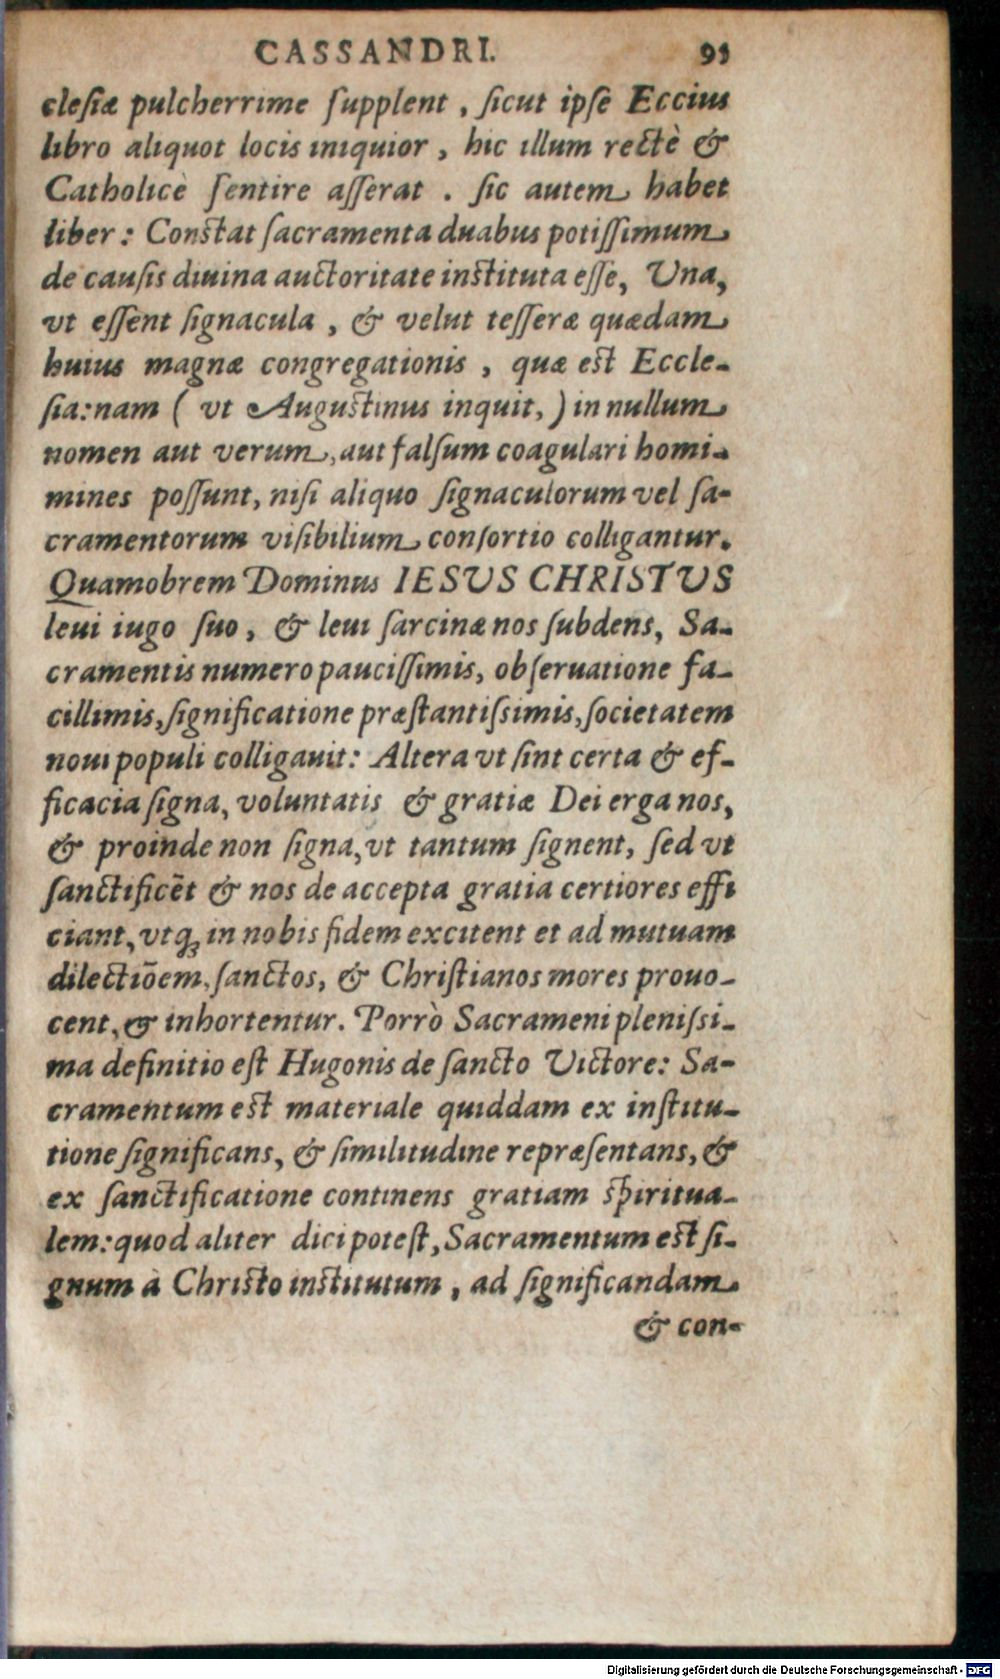 CASSANDRI. 95
clesiæ pulcherrime supplent, sicut ipse Eccius
libro aliquot locis iniquior, hic illum rectè &
Catholicè sentire asserat. sic autem habet
liber: Constat sacramenta duabus potissimum
de causis diuina auctoritate instituta esse, Una,
vt essent signacula, & velut tesseræ quædam
huius magnæ congregationis, quæ est Eccle-
sia: nam ( vt Augustinus inquit, ) in nullum
nomen aut verum, aut falsum coagulari homi-
mines possunt, nisi aliquo signaculorum vel sa-
cramentorum visibilium consortio colligantur.
Quamobrem Dominus IESUS CHRISTUS
leui iugo suo, & leui sarcinæ nos subdens, Sa-
cramentis numero paucissimis, obseruatione fa-
cillimis, significatione præstantissimis, societatem
noui populi colligauit: Altera vt sint certa & ef-
ficacia signa, voluntatis & gratiæ Dei erga nos,
& proinde non signa, vt tantum signent, sed vt
sanctificēt & nos de accepta gratia certiores effi
ciant, vtq; in nobis fidem excitent et ad mutuam
dilectiōem, sanctos, & Christianos mores prouo-
cent, & inhortentur. Porrò Sacrameni plenissi-
ma definitio est Hugonis de sancto Victore: Sa-
cramentum est materiale quiddam ex institu-
tione significans, & similitudine repræsentans, &
ex sanctificatione continens gratiam spiritua-
lem: quod aliter dici potest, Sacramentum est si-
gnum à Christo institutum, ad significandam
& con-
Digitalisierung gefördert durch die Deutsche Forschungsgemeinschaft - DFG